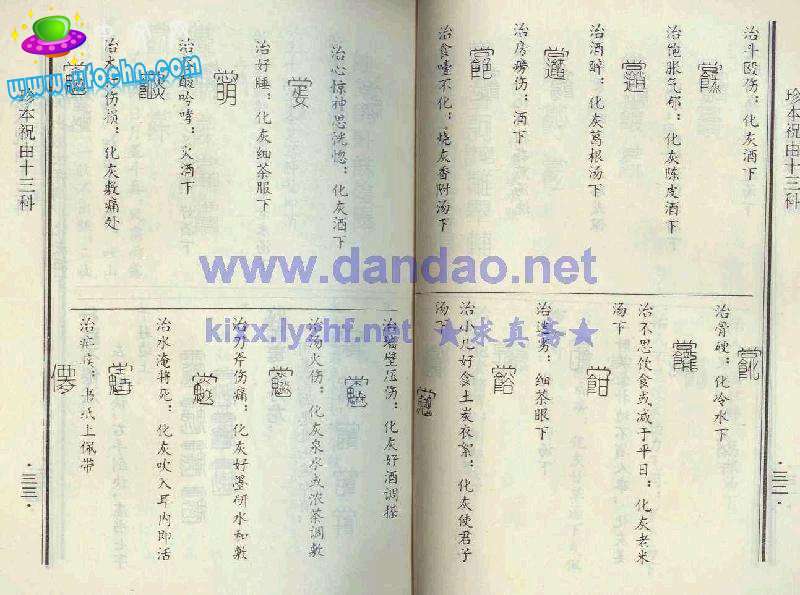 珍本祝由十三科
治斗殴伤：化灰酒下
治饱胀气郁：化灰陈皮酒下
治酒醉：化灰葛根汤下
治房痨伤：酒下
治食噎不化：烧灰香附汤下
治骨硬：化冷水下
治不思饮食或减于平日：化灰老米
汤下
治逆劳：细茶眼下
治小儿好食土炭衣絮：化灰使君子
汤下
·三二·
治心惊神思恍惚：化灰酒下
治好睡：化灰细茶服下
吟哮：灭酒下
伤损：化灰敷痛处
治墙壁压伤：化灰好酒调搽
治汤火伤：化灰泉水或浓茶调敷
治刀斧伤痛：化灰好墨研水和敷
治水淹将死：化灰吹入耳内即活
治疟疾：书纸上佩带
珍本祝由十三科
·三三·
www.ufochn.com
www.dandao.net
kixx.lyzhf.net ★求真斋★